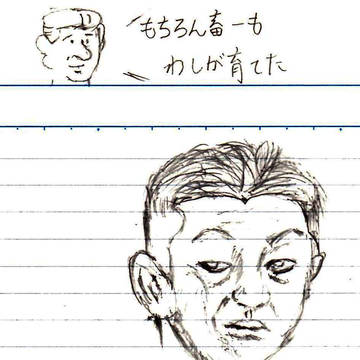 もちろん畜一も
わしが育てた